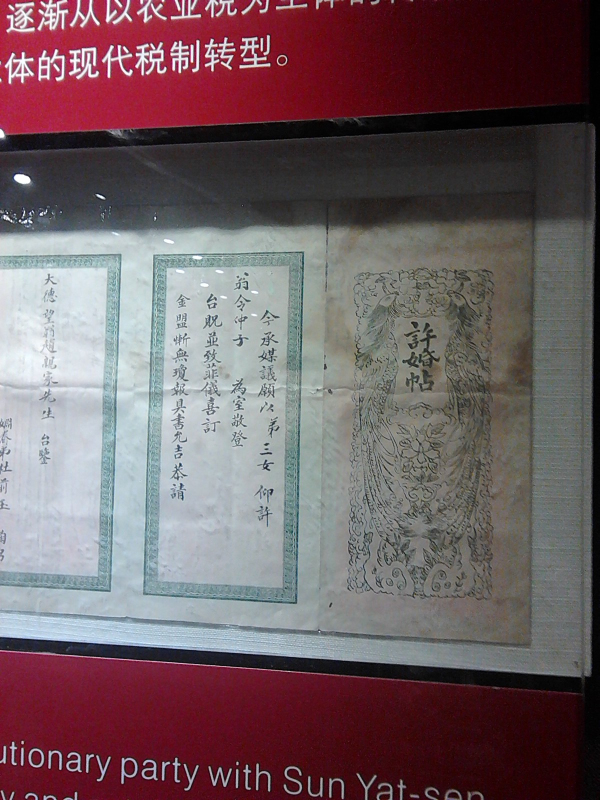 逐渐从以农业税为主体的传
体的现代税制转型。
許婚帖
今承媒議願以第三女 仰許
翁令仲子 為室敬登
台貺並致菲儀喜訂
金盟慚無瓊報具書允吉恭請
大德望翁趙親家先生 台鑒
姻眷弟杜
utionary party with Sun Yat-sen
y and